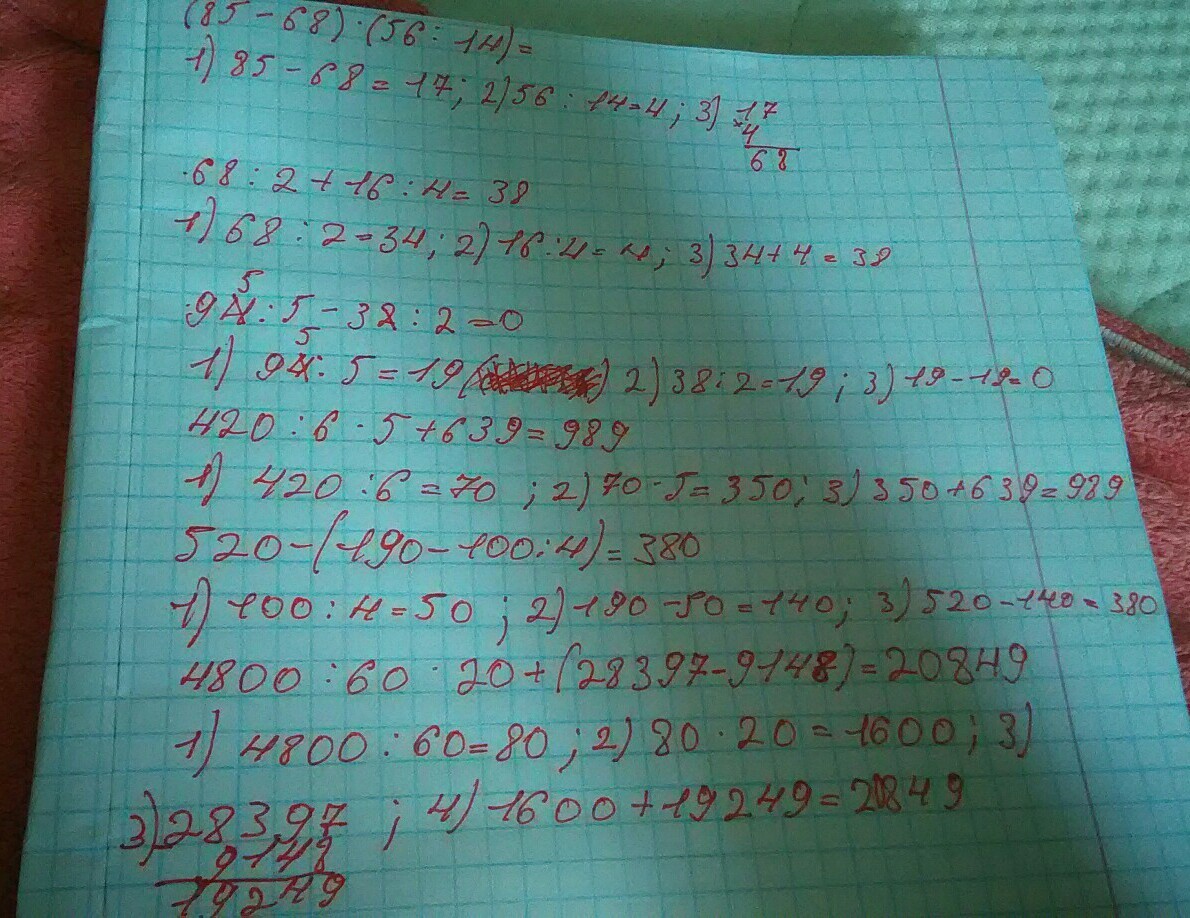 (85-68)·(56:14)=
1) 85-68=17; 2) 56:14=4; 3) 17
×4
68
68:2+16:4=38
1) 68:2=34; 2) 16:4=4; 3) 34+4=38
95:5-38:2=0
1) 95:5=19 2) 38:2=19; 3) 19-19=0
420:6·5+639=989
1) 420:6=70; 2) 70·5=350; 3) 350+639=989
520-(190-100:4)=380
1) 100:4=50; 2) 190-50=140; 3) 520-140=380
4800:60·20+(28397-9148)=20849
1) 4800:60=80; 2) 80·20=1600; 3)
3) 28397; 4) 1600+19249=20849
9148
19249